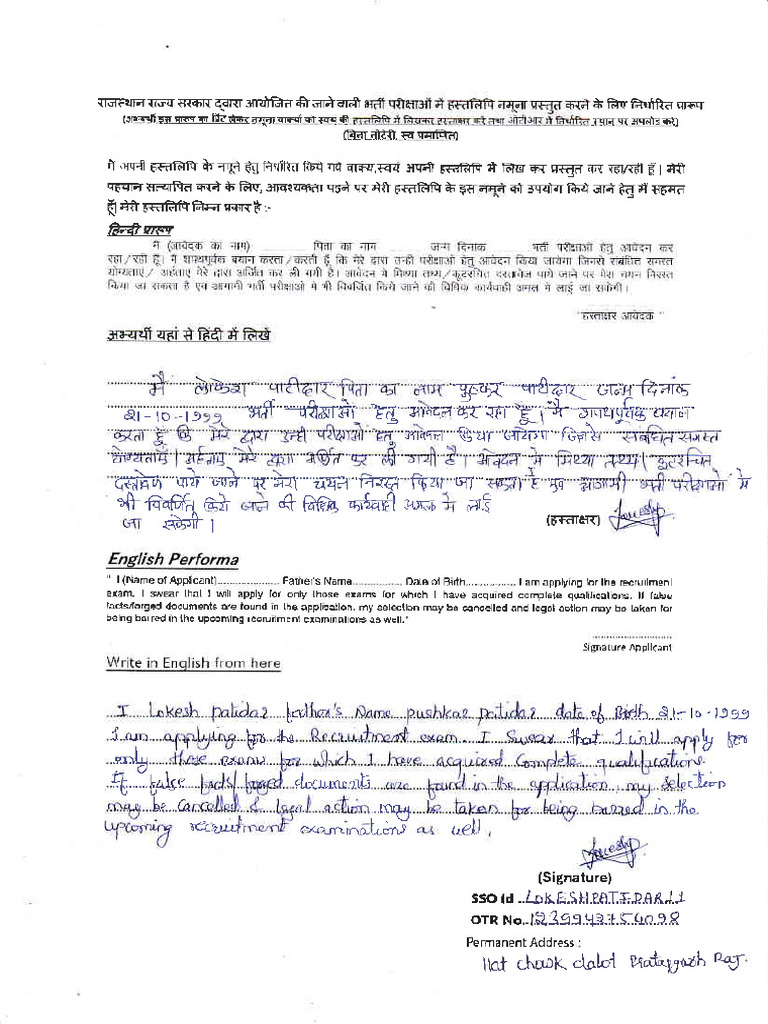 राजस्थान राज्य सरकार द्वारा आयोजित की जाने वाली भर्ती परीक्षाओं में हस्तलिपि नमूना प्रस्तुत करने के लिए निर्धारित प्रारूप
(अभ्यर्थी इस प्रारूप का प्रिंट लेकर नमूना वाक्यों को स्वयं की हस्तलिपि में लिखकर हस्ताक्षर करे तथा ओटीआर में निर्धारित स्थान पर अपलोड करे)
(बिना नोटेरी, स्व प्रमाणित)
मैं अपनी हस्तलिपि के नमूने हेतु निर्धारित किये गये वाक्य,स्वयं अपनी हस्तलिपि में लिख कर प्रस्तुत कर रहा/रही हूँ। मेरी
पहचान सत्यापित करने के लिए, आवश्यकता पड़ने पर मेरी हस्तलिपि के इस नमूने को उपयोग किये जाने हेतु में सहमत
हूँ। मेरी हस्तलिपि निम्न प्रकार है :-
हिन्दी प्रारूप
मैं (आवेदक का नाम) ............ पिता का नाम ............ जन्म दिनांक ............ भर्ती परीक्षाओं हेतु आवेदन कर
रहा/रही हूँ। मैं शपथपूर्वक बयान करता/करती हूँ कि मेरे द्वारा उन्ही परीक्षाओं हेतु आवेदन किया जायेगा जिनसे संबंधित समस्त
योग्यताएं/ अर्हताएं मेरे द्वारा अर्जित कर ली गयी है। आवेदन मे मिथ्या तथ्य/कूटरचित दस्तावेज पाये जाने पर मेरा चयन निरस्त
किया जा सकता है एवं आगामी भर्ती परीक्षाओं मे भी विवर्जित किये जाने की विधिक कार्यवाही अमल मे लाई जा सकेगी।
"हस्ताक्षर आवेदक "
अभ्यर्थी यहां से हिंदी में लिखें
मैं लोकेश पाटीदार पिता का नाम पुष्कर पाटीदार जन्म दिनांक
21-10-1999 भर्ती परीक्षाओं हेतु आवेदन कर रहा हूँ। मैं शपथपूर्वक बयान
करता हूँ कि मेरे द्वारा उन्ही परीक्षाओं हेतु आवेदन किया जायेगा जिनसे संबंधित समस्त
योग्यताएं/अर्हताएं मेरे द्वारा अर्जित कर ली गयी है। आवेदन मे मिथ्या तथ्य/कुटरचित
दस्तावेज पाये जाने पर मेरा चयन निरस्त किया जा सकता है एवं आगामी भर्ती परीक्षाओं मे
भी विवर्जित किये जाने की विधिक कार्यवाही अमल मे लाई
जा सकेगी।
(हस्ताक्षर)
English Performa
" I (Name of Applicant)..................... Father's Name................. Date of Birth................. I am applying for the recruitment
exam. I swear that I will apply for only those exams for which I have acquired complete qualifications. If false
facts/forged documents are found in the application, my selection may be cancelled and legal action may be taken for
being barred in the upcoming recruitment examinations as well."
Signature Applicant
Write in English from here
I Lokesh patidar fadhar's Name pushkar patidar date of Birth 21-10-1999
I am applying for the Recruitment exam. I Swear that I will apply for
only those exams for which I have acquired Complete qualifications.
If false facts/forged documents are found in the application, my selection
may be Cancelled & legal action may be taken for being barred in the
upcoming recruitment examinations as well.
(Signature)
SSO Id ..LOKESHPATIDAR11
OTR No..1239943754098
Permanent Address :
Hat chowk dalot Pratapgarh Raj.